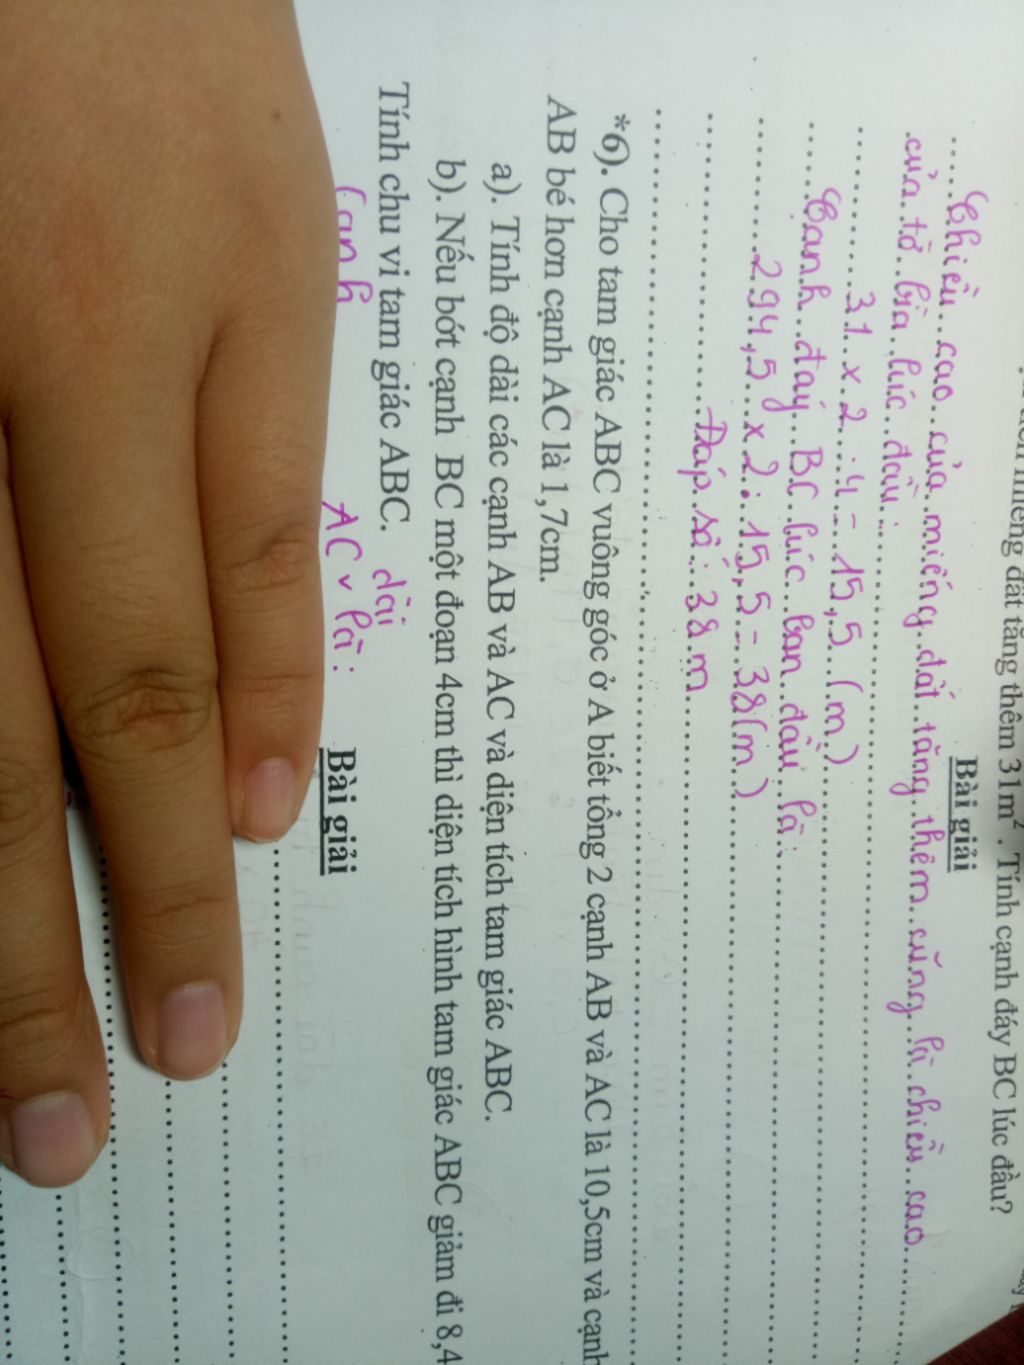 tăng thêm 31m². Tính cạnh đáy BC lúc đầu?
Bài giải
Chiều cao của miếng đất tăng thêm cũng là chiều cao
của tờ bìa lúc đầu:
31 x 2 : 4 = 15,5 (m)
Cạnh đáy BC lúc ban đầu là:
294,5 x 2 : 15,5 = 38 (m)
Đáp số: 38 m
*6). Cho tam giác ABC vuông góc ở A biết tổng 2 cạnh AB và AC là 10,5cm và cạnh
AB bé hơn cạnh AC là 1,7cm.
a). Tính độ dài các cạnh AB và AC và diện tích tam giác ABC.
b). Nếu bớt cạnh BC một đoạn 4cm thì diện tích hình tam giác ABC giảm đi 8,4
Tính chu vi tam giác ABC.
Bài giải
Cạnh AC dài là: